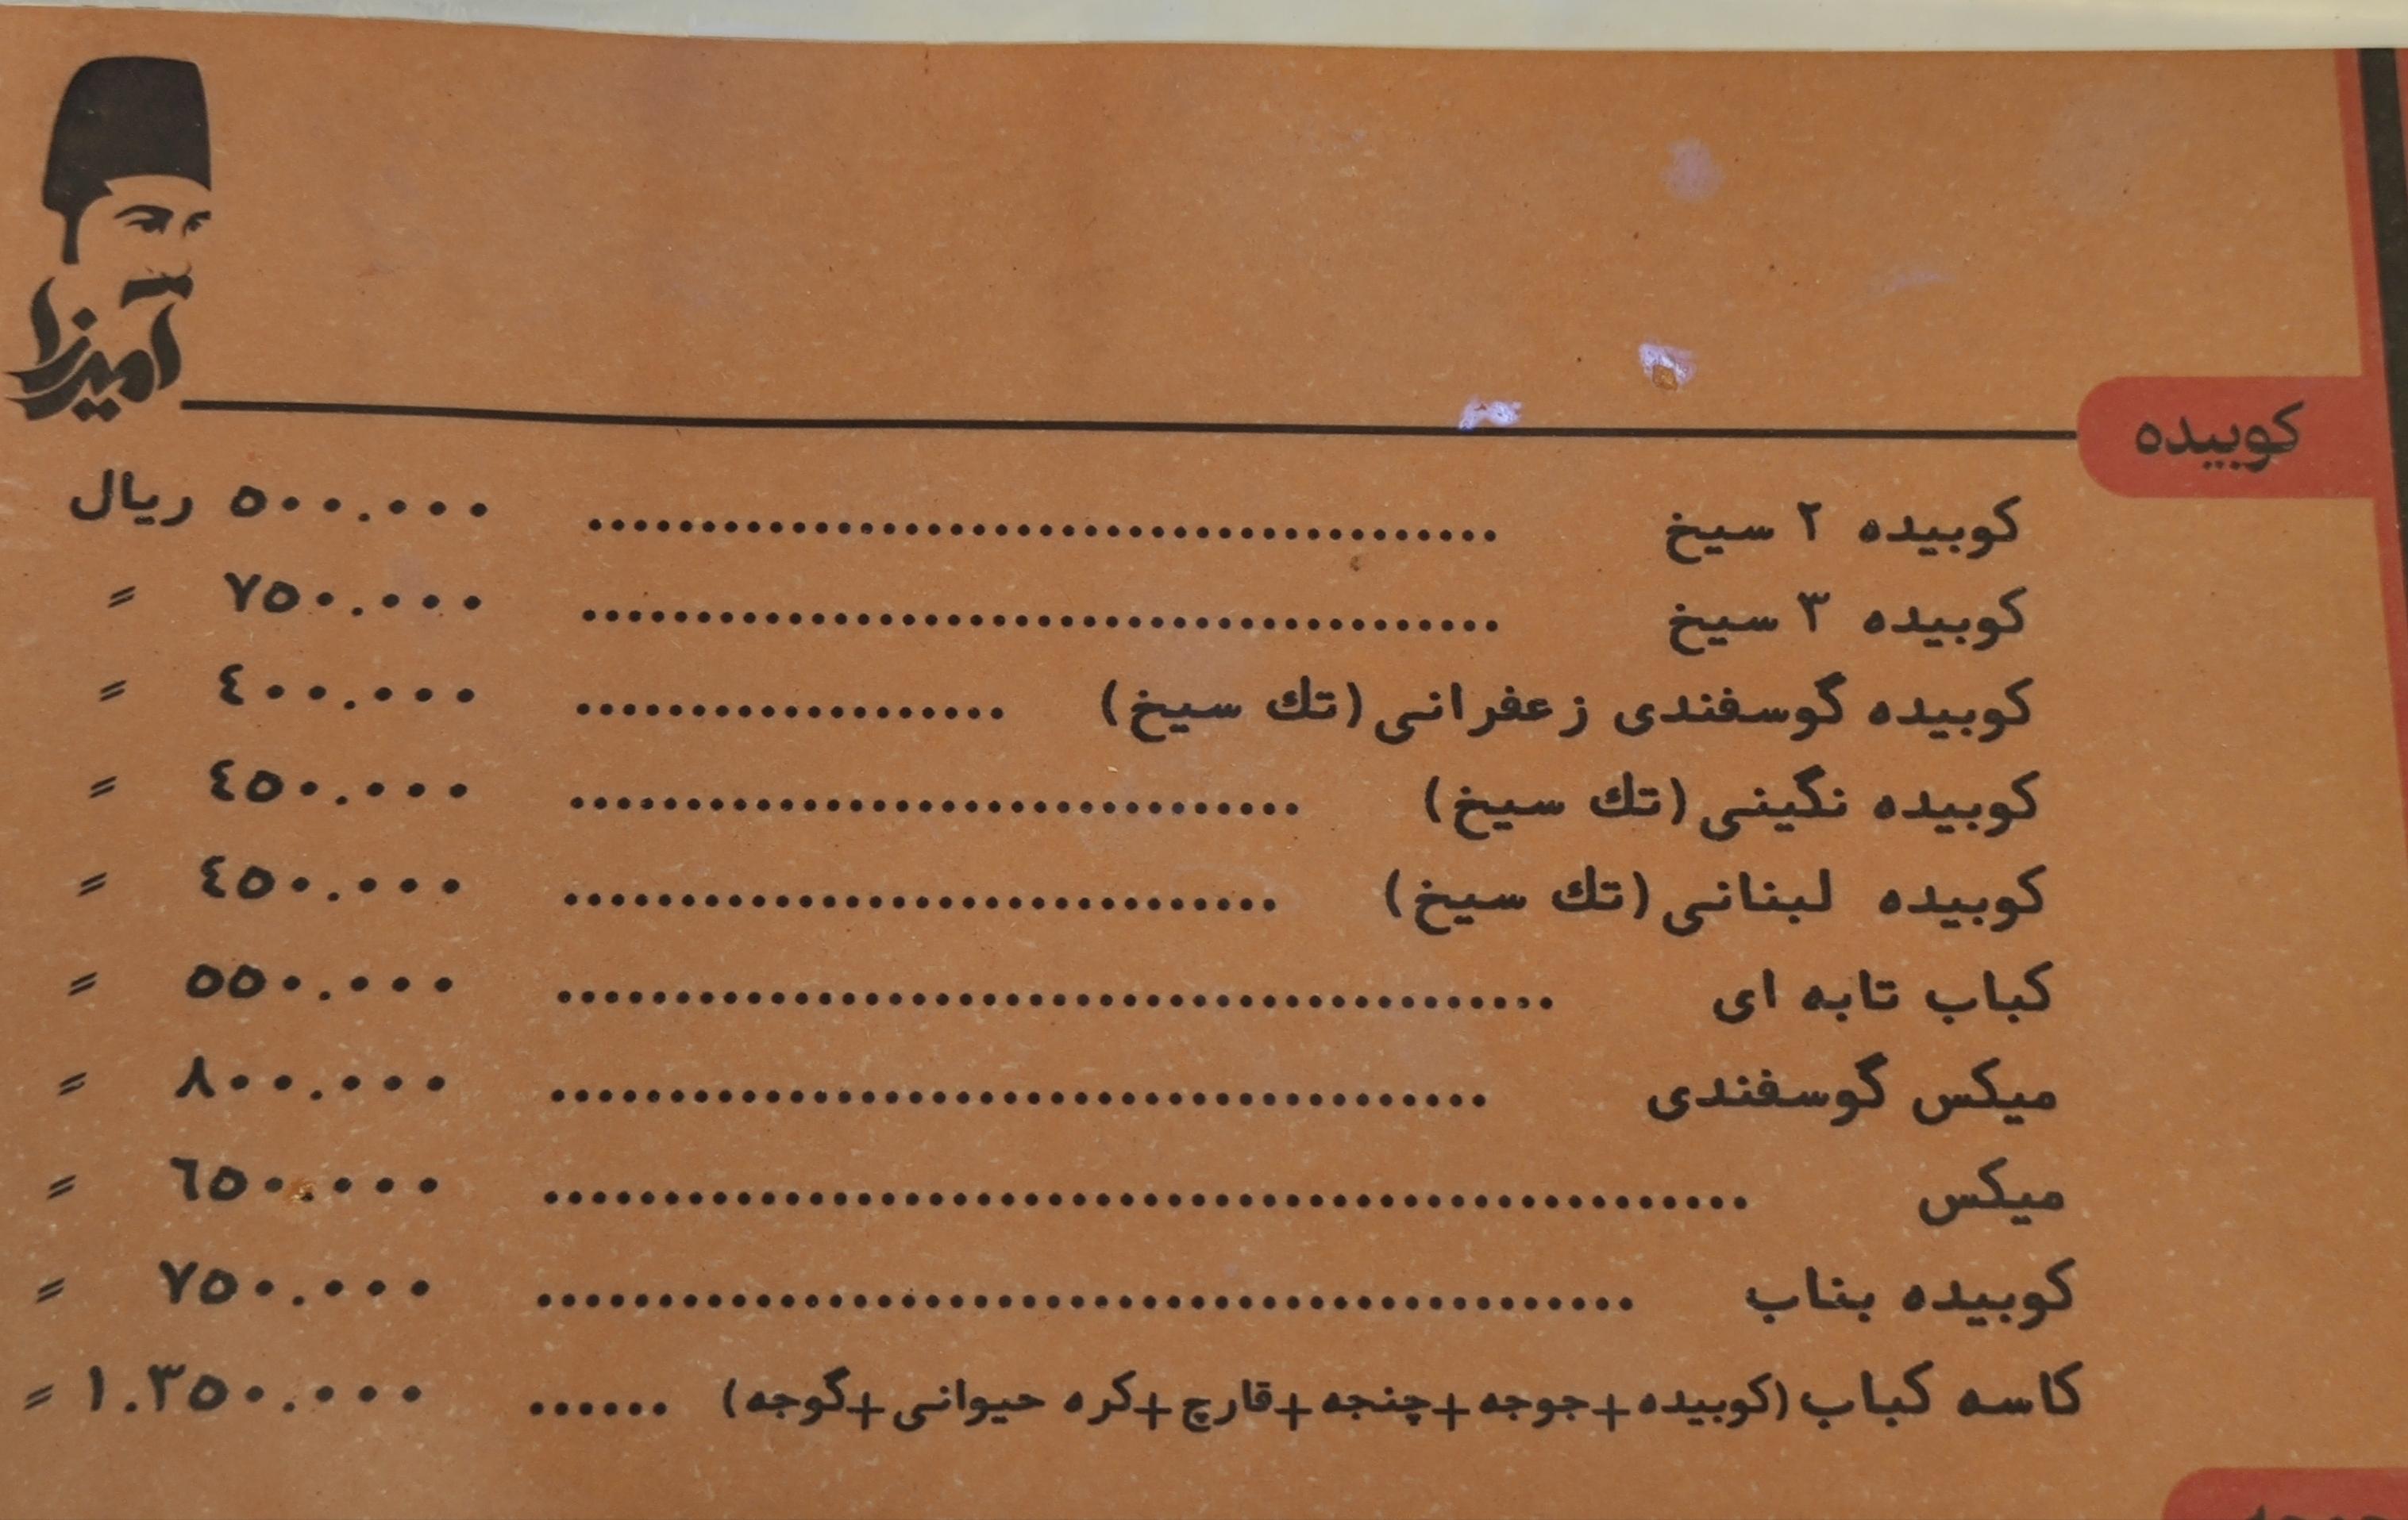 آمیرزا
کوبیده
کوبیده ۲ سیخ ........................................ ۵۰۰.۰۰۰ ریال
کوبیده ۳ سیخ ........................................ ۷۵۰.۰۰۰ =
کوبیده گوسفندی زعفرانی (تك سیخ) ................... ٤۰۰.۰۰۰ =
کوبیده نگینی (تك سیخ) ................................ ٤۵۰.۰۰۰ =
کوبیده لبنانی (تك سیخ) ............................... ٤۵۰.۰۰۰ =
کباب تابه ای ............................................ ۵۵۰.۰۰۰ =
میکس گوسفندی ........................................ ۸۰۰.۰۰۰ =
میکس .................................................... ٦۵۰.۰۰۰ =
کوبیده بناب .............................................. ۷۵۰.۰۰۰ =
کاسه کباب (کوبیده+جوجه+چنجه+قارچ+کره حیوانی+گوجه) ...... ۱.۳۵۰.۰۰۰ =